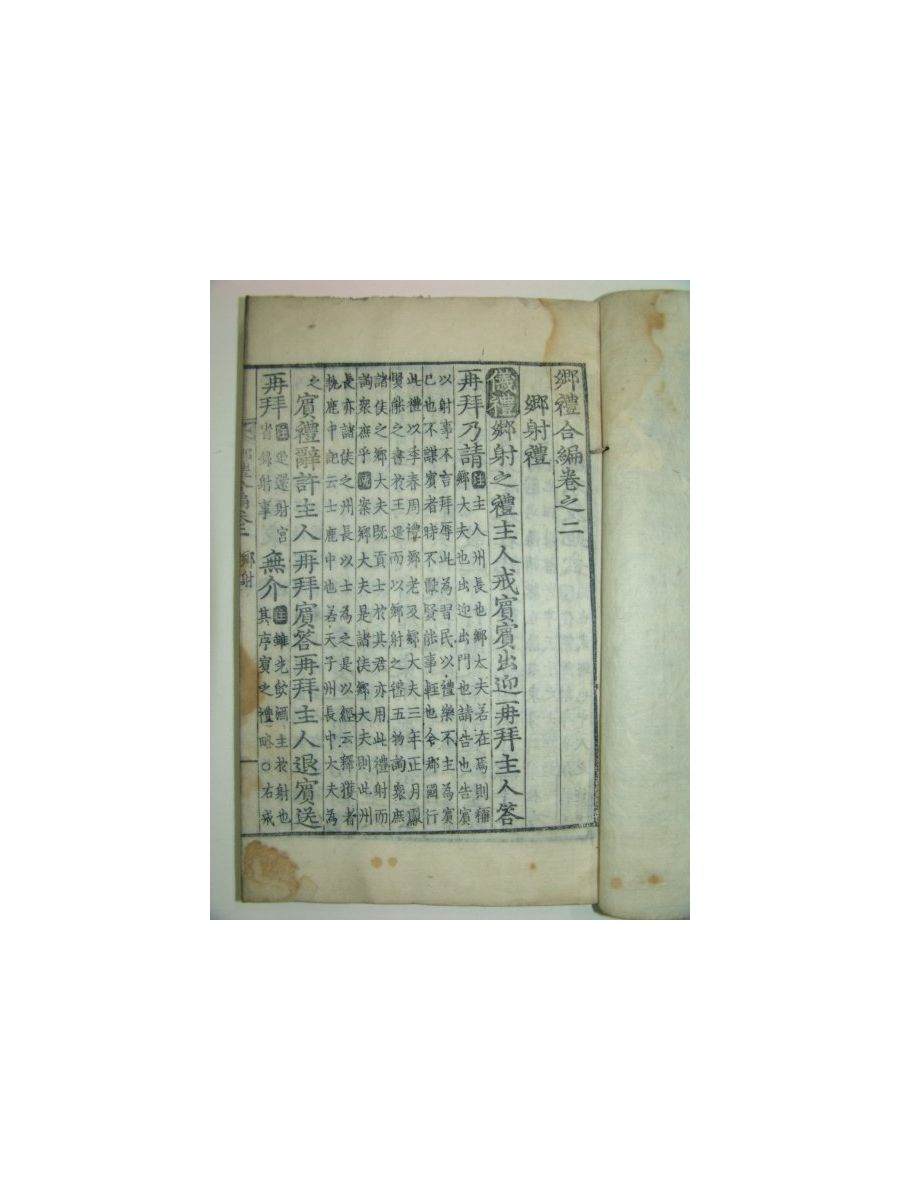 鄉禮合編卷之二
鄉射禮
儀禮鄉射之禮主人戒賓賓出迎再拜主人答
再拜乃請註主人州長也鄉大夫若在焉則稱
鄉大夫也出迎出門也請告也告賓
以射事不言拜辱此為習民以禮樂不主為賓
已也不謀賓者時不獻賢能事輕也今郡國行
此禮以季春周禮鄉老及鄉大夫三年正月獻
賢能之書於王退而以鄉射之禮五物詢眾庶
諸侯之鄉大夫既貢士於其君亦用此禮射而
詢眾庶乎疏案鄉大夫是諸侯鄉大夫則此州
長亦諸侯之州長以士為之是以經云釋獲者
執鹿中記云士鹿中也若天子州長中大夫為
之賓禮辭許主人再拜賓答再拜主人退賓送
再拜註退還射宮
省錄射事無介註雖先飲酒主於射也
其序賓之禮略○右戒
鄉射